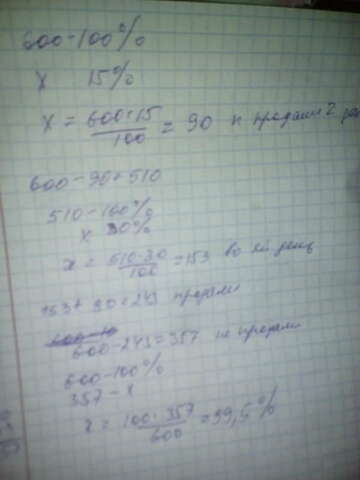 600 - 100%
x 15%
x = 600·15 / 100 = 90 к продали 1
600 - 90 = 510
510 - 100%
x 30%
x = 510·30 / 100 = 153 во день
153 + 90 = 243 продали
600 - 243 = 357 не продали
600 - 100%
357 - x
x = 100·357 / 600 = 59,5%